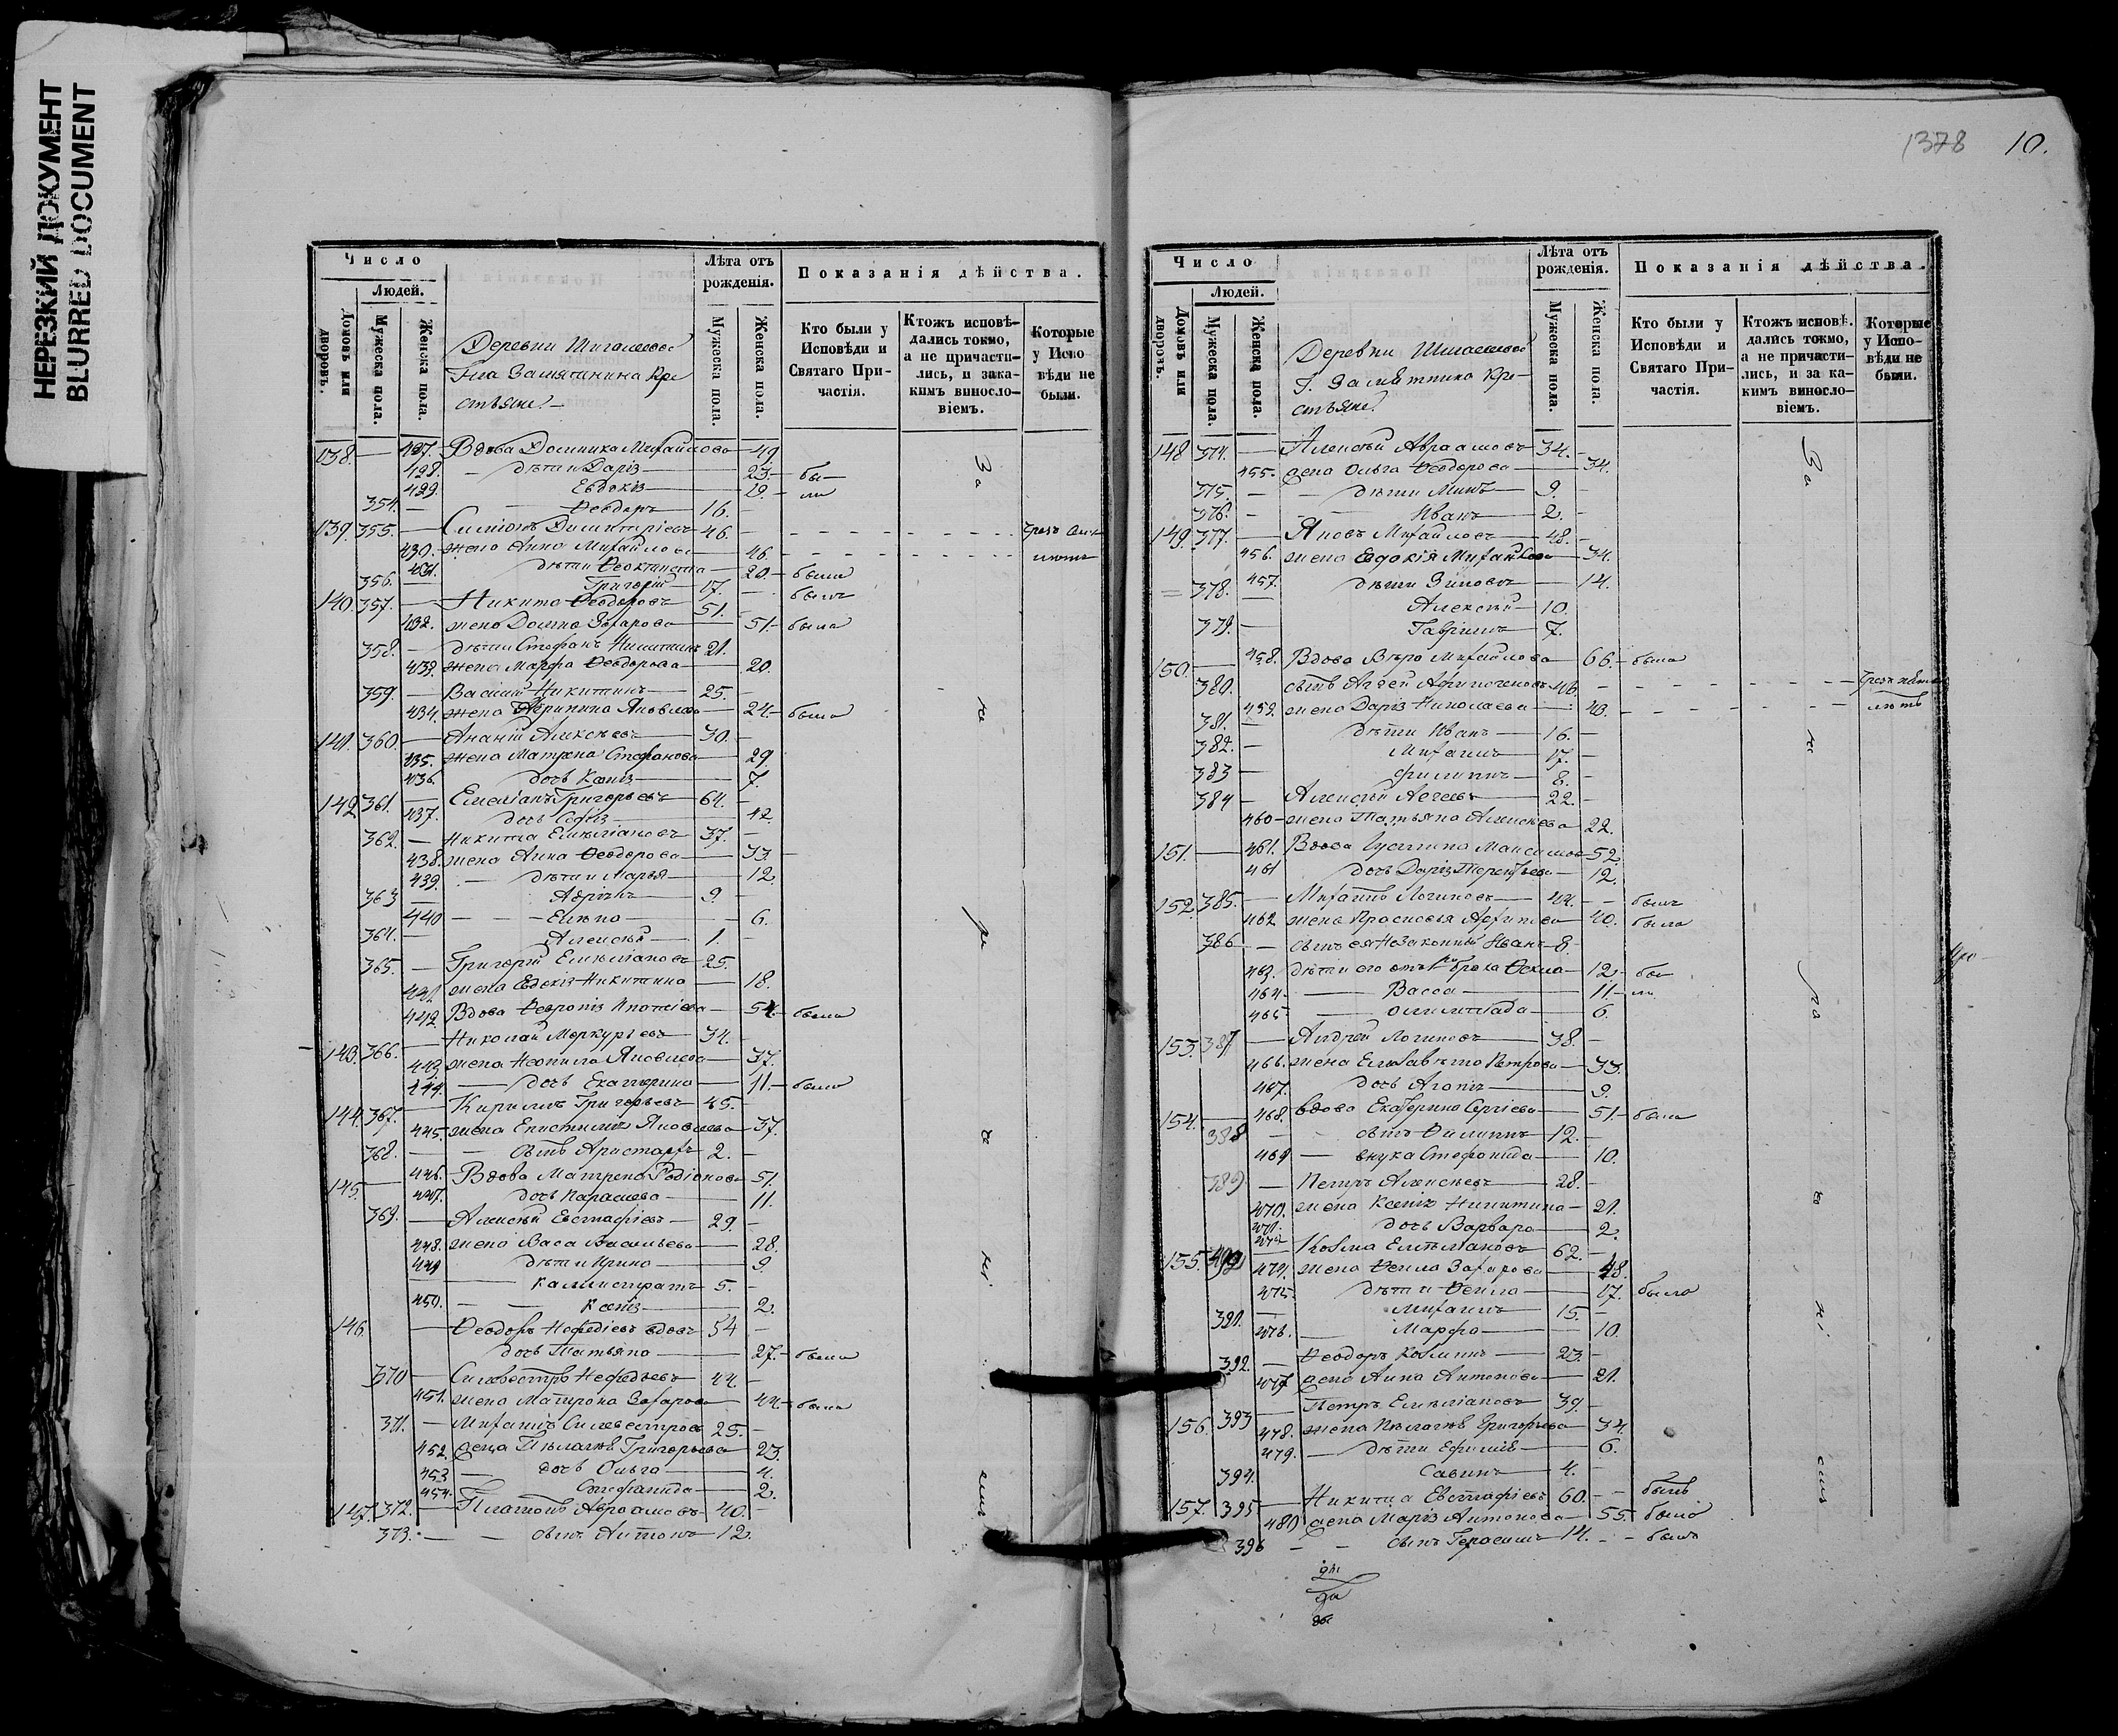 НЕРЕЗКИЙ ДОКУМЕНТ
BLURRED DOCUMENT
Число
Людей.
Домовъ или дворовъ.
Мужеска пола.
Женска пола.
Деревни
Гна Замятнина Кре
стьяне.
Лѣта отъ рожденія.
Мужеска пола.
Женска пола.
Показанія дѣйства.
Кто были у Исповѣди и Святаго Причастія.
Ктожъ исповѣдались токмо, а не причастились, и закакимъ винословіемъ.
Которые у Исповѣди не были.
138. — 427. Вдова Домника Михайлова — 49
428. — дѣти Дарія — 23 — бы—
429. Евдокія — 19 — ли
354. — Ѳеодоръ — 16. —
139. 355. — Симіонъ Димитріевъ — 46.
430. жена Анна Михайлова — 46.
431. дѣти Ѳеоктиста — 20 — была
356. — Григорій — 17. — былъ
140. 357. — Никита Ѳеодоровъ — 51.
432. жена Домна Захарова — 51 — была
358. — дѣти Стефанъ Никитинъ 21.
433. жена Марфа Ѳеодорова — 20.
359. — Василій Никитинъ — 25. —
434. жена Агрипина Яковлева — 24 — была
141. 360. — Ананій Алексѣевъ — 30. —
435. жена Матрена Стефанова — 29.
436. дочь Ксенія — 7.
142 361. — Емеліанъ Григорьевъ — 64. —
437. дочь Софія — 42
362. — Никита Емеліановъ — 37. —
438. жена Анна Ѳеодорова — 33.
439. — дѣти Марья — 12
363 — 9 —
440 — Елена — 6.
364. — Алексѣй — 1. —
365. — Григорій Емеліановъ — 25.
441. жена Евдокія Никитина — 18.
442. Вдова Ѳевронія — 54 — была
143. 366. — Николай Меркурьевъ — 34.
443. жена Неонила Яковлева — 37.
444. — дочь Екатерина — 11. — была
144. 367. — Кирилъ Григорьевъ — 45. —
445. жена Епистимія Яковлева — 37.
368. — сынъ Аристархъ 2. —
145. — 446. Вдова Матрена Родіонова 51.
447. дочь Парасева — 11.
369. — Алексѣй Евстафіевъ — 29 —
448. жена Васа Васильева — 28.
449 дѣти Ирина — 9.
Каллистратъ — 5. —
450. — Ксенія — 2.
146. — Ѳеодоръ Нефедіевъ вдовъ 54 —
дочь Татьяна — 27. — была
370 — Сильвестръ Нефедьевъ — 44. —
451. жена Матрона Захарова — 44. — была
371. — Михаилъ Сильвестровъ 25. —
452. жена Пелагія Григорьева — 23.
453 — дочь Ольга — 4.
454. Стефанида — 2.
147. 372. — Платонъ Авраамовъ — 40. —
373. — сынъ Антонъ — 12.
За
не
ра
де
ні
емъ
1378 10.
Число
Людей.
Домовъ или дворовъ.
Мужеска пола.
Женска пола.
Деревни
Г. Замятнина Кре-
стьяне.
Лѣта отъ рожденія.
Мужеска пола.
Женска пола.
Показанія дѣйства.
Кто были у Исповѣди и Святаго Причастія.
Ктожъ исповѣдались токмо, а не причастились, и за какимъ винословіемъ.
Которые у Исповѣди не были.
148 374. — Алексѣй Авраамовъ — 34. —
455. жена Ольга Ѳеодорова — 34.
375. — дѣти Минъ — 9. —
376. — Иванъ — 2. —
149. 377. — Яковъ Михайловъ — 48. —
456. жена Евдокія Михайлова — 34.
457. дѣти Зиновія — 14.
378. — Алексѣй — 10.
379. — Гавріилъ — 7.
150. — 458. Вдова Вѣра Михайлова — 66. — была
380. сынъ Авдей 46.
459. жена Дарія Николаева — 43.
381. — дѣти Иванъ — 16. —
382. — Михаилъ — 17. —
383 — Филиппъ — 8. —
384 — Алексѣй Авдеевъ — 22. —
460 — жена Татьяна Алексѣева 22.
151. — 461. Вдова Максимова 52
461 дочь Дарія Терентьева — 12.
152 385. — Михаилъ Логиновъ — 44. — былъ
462 жена Прасковья — 40. была
386 — сынъ ея незаконный Иванъ — 8.
463. дѣти его отъ 1го брака Ѳекла — 12 — бы
464. — Васса — 11. — ли
465 — Олимпіада — 6.
153. 387 — Андрей Логиновъ — 38. —
466. жена Елисавета Петрова — 33.
467. дочь Агапія — 9.
154. — 468. вдова Екатерина Сергіева — 51 — была
388 — сынъ Филиппъ — 12. —
469 — внука Стефанида — 10.
389 — Петръ Алексѣевъ — 28. —
470. жена Ксенія Никитина — 21.
471. дочь Варвара — 2.
155. Козма Емеліановъ — 62. —
474. жена Ѳекла Захарова — 48.
475. дѣти Ѳекла — 17. была
391. — Михаилъ — 15. —
476. — Марфа — 10.
392. — Ѳеодоръ Козминъ — 23. —
477 жена Анна Антонова — 21.
156. 393 — Петръ Емеліановъ — 39. —
478. жена Пелагія Григорьева — 34.
479. — дѣти Ефимія — 6.
394. Савинъ — 4. —
157. 395 — Никита Евстафіевъ 60. — былъ
480 жена Марія Антонова — 55. была
396 — сынъ Герасимъ 14. — былъ
За
не
ра
де
ні
емъ